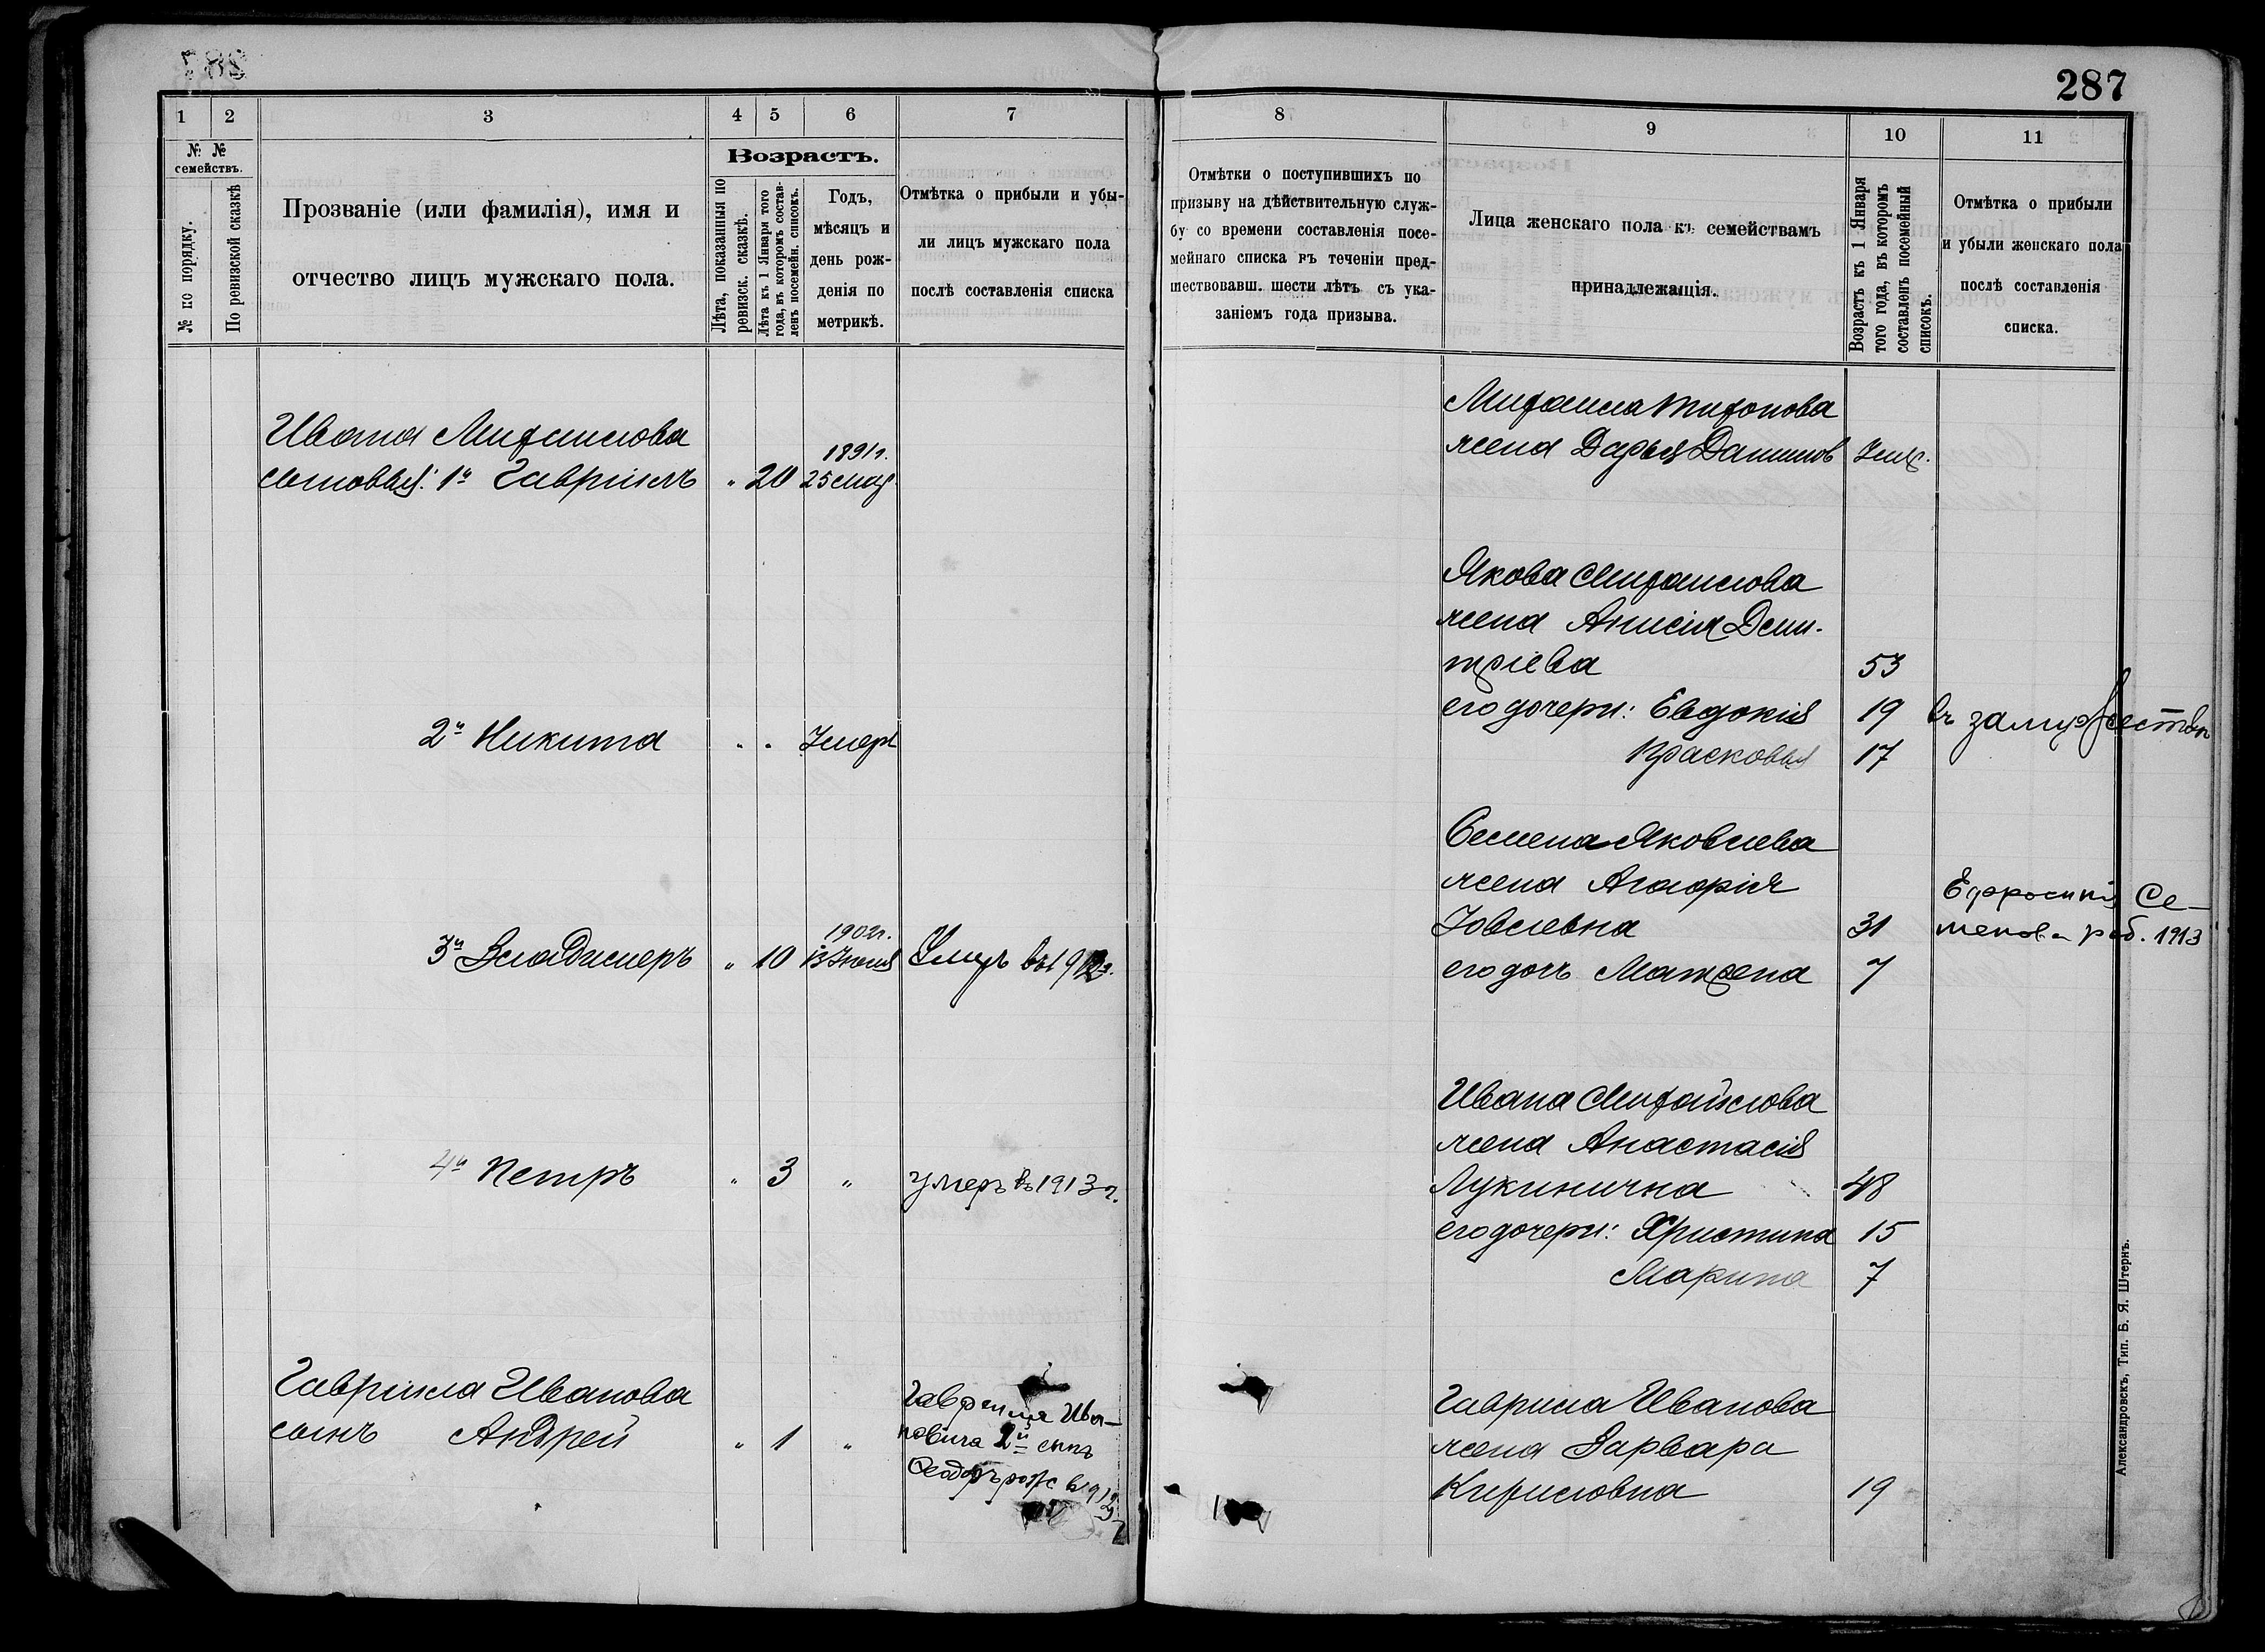 287
1 2 3 4 5 6 7
№ № семействъ.
№ по порядку.
По ревизской сказкѣ
Прозваніе (или фамилія), имя и
отчество лицъ мужскаго пола.
Возрастъ.
Лѣта, показанныя по
ревизск. сказкѣ.
Лѣта къ 1 Января того
года, въ которомъ состав-
ленъ посемейн. списокъ.
Годъ,
мѣсяцъ и
день рож-
денія по
метрикѣ.
Отмѣтка о прибыли и убы-
ли лицъ мужскаго пола
послѣ составленія списка
Ивана Михаилова
1891г.
сыновья: 1й Гавріилъ " 20 25 мая
2й Никита " " Умеръ
1902г.
3й Владимеръ " 10 15 Іюля Умеръ въ 1912г.
4й Петръ " 3 " умеръ въ 1913 г.
Гавриила Иванова
сынъ Андрей " 1 "
Гавриила Ива-
новича 2й сынъ
Феодоръ рожд в 1912
8 9 10 11
Отмѣтки о поступившихъ по
призыву на дѣйствительную служ-
бу со времени составленія посе-
мейнаго списка въ теченіи пред-
шествовавш. шести лѣтъ съ ука-
заніемъ года призыва.
Лица женскаго пола къ семействамъ
принадлежащія.
Возрастъ къ 1 Января
того года, въ которомъ
составленъ посемейный
списокъ.
Отмѣтка о прибыли
и убыли женскаго пола
послѣ составленія
списка.
Михаила Тихонова
жена Дарья Данилов Умер.
Якова Михаилова
жена Анисія Дми-
тріева 53
его дочери: Евдокія 19 въ замужествѣ
Прасковья 17
Семена Яковлева
жена Агафія
Іовлевна 31
его дочъ Матрена 7
Ефросинія Се-
менова род. 1913
Ивана Михайлова
жена Анастасія
Лукинична 48
его дочери: Христина 15
Марина 7
Гаврила Иванова
жена Варвара
Кириловна 19
Александровскъ, Тип. Б. Я. Штернъ.